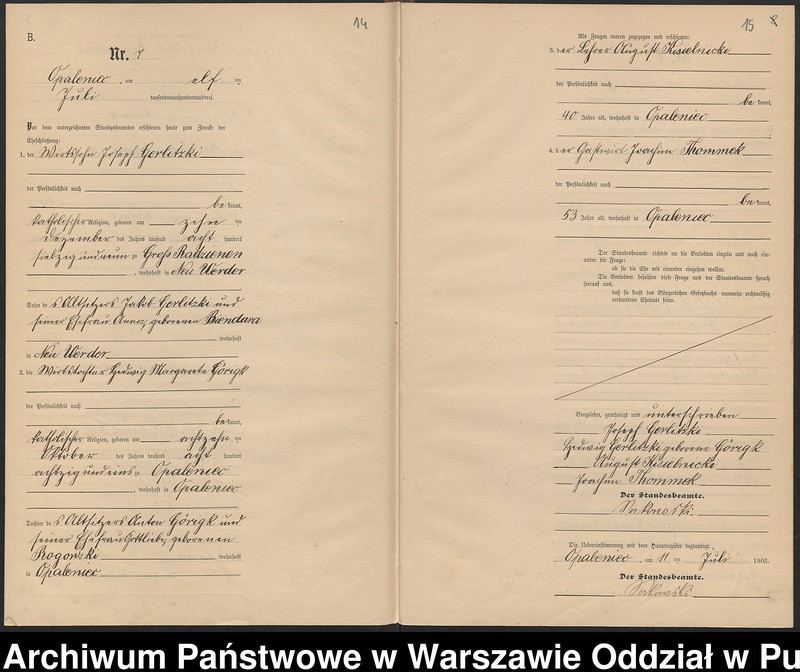 14
B.
Nr. 7
Opaleniec, am elf ten
Juli tausendneunhundertunddrei.
Vor dem unterzeichneten Standesbeamten erschienen heute zum Zwecke der
Eheschließung:
1. der Wirtssohn Joseph Gorlitzki
der Persönlichkeit nach
be kannt,
katholischer Religion, geboren am zehn ten
Dezember des Jahres tausend acht hundert
siebzig und neun zu Groß Radzienen
, wohnhaft in Neu Werder
Sohn des Altsitzers Jakob Gorlitzki und
seiner Ehefrau Anna, geborenen Biendara
wohnhaft
in Neu Werder
2. die Wirtstochter Hedwig Margarete Görigk
der Persönlichkeit nach
be kannt,
katholischer Religion, geboren am achtzehn ten
Oktober des Jahres tausend acht hundert
achtzig und eins zu Opaleniec
, wohnhaft in Opaleniec
Tochter des Altsitzers Anton Görigk und
seiner Ehefrau Gottliebe, geborenen
Rogowski wohnhaft
in Opaleniec
15
Als Zeugen waren zugezogen und erschienen:
3. der Lehrer August Kisielnicki
der Persönlichkeit nach
be kannt,
40 Jahre alt, wohnhaft in Opaleniec
4. der Gastwirt Joachim Thommek
der Persönlichkeit nach
be kannt,
53 Jahre alt, wohnhaft in Opaleniec
Der Standesbeamte richtete an die Verlobten einzeln und nach ein-
ander die Frage:
ob sie die Ehe mit einander eingehen wollen.
Die Verlobten bejahten diese Frage und der Standesbeamte sprach
hierauf aus,
daß sie kraft des Bürgerlichen Gesetzbuchs nunmehr rechtmäßig
verbundene Eheleute seien.
Vorgelesen, genehmigt und unterschrieben
Joseph Gorlitzki
Hedwig Gorlitzki geborene Görigk
August Kisielnicki
Joachim Thommek
Der Standesbeamte.
Sakowski.
Die Uebereinstimmung mit dem Hauptregister beglaubigt
Opaleniec, am 11 ten Juli 1903.
Der Standesbeamte.
Sakowski
Archiwum Państwowe w Warszawie Oddział w Pu